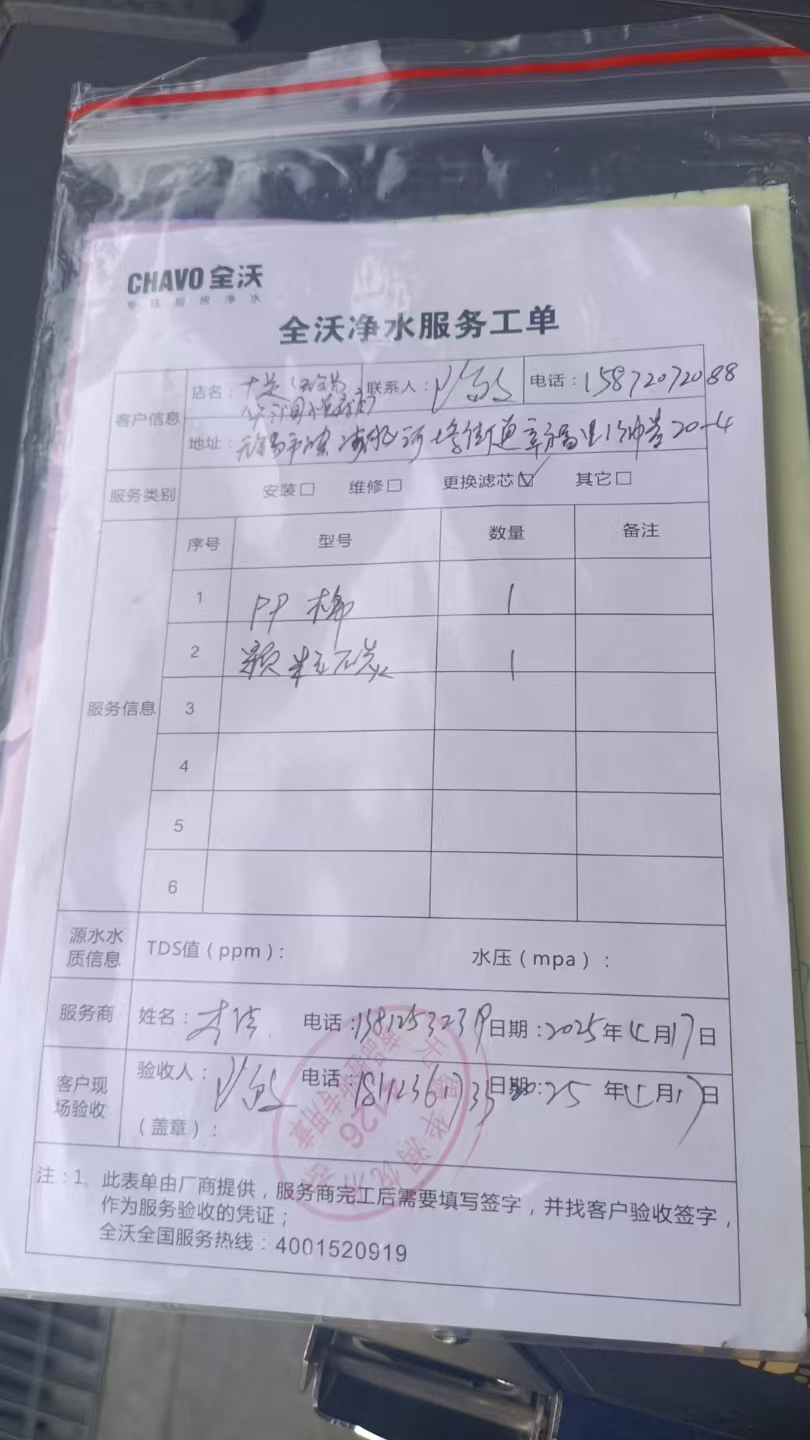 CHAVO 全沃
专注厨房净水
全沃净水服务工单
客户信息 店名： 联系人： 电话：15872072088
地址：无锡市滨 河埒街道幸福里 20-4
服务类别 安装□ 维修□ 更换滤芯☑ 其它□
服务信息 序号 型号 数量 备注
1 PP棉 1
2 颗粒碳 1
3
4
5
6
源水水质信息 TDS值（ppm）： 水压（mpa）：
服务商 姓名：李 电话：日期：2025年4月17日
客户现场验收 验收人： 电话： 日期：25 年4月17日
（盖章）：
注：1、此表单由厂商提供，服务商完工后需要填写签字，并找客户验收签字，
作为服务验收的凭证；
全沃全国服务热线：4001520919